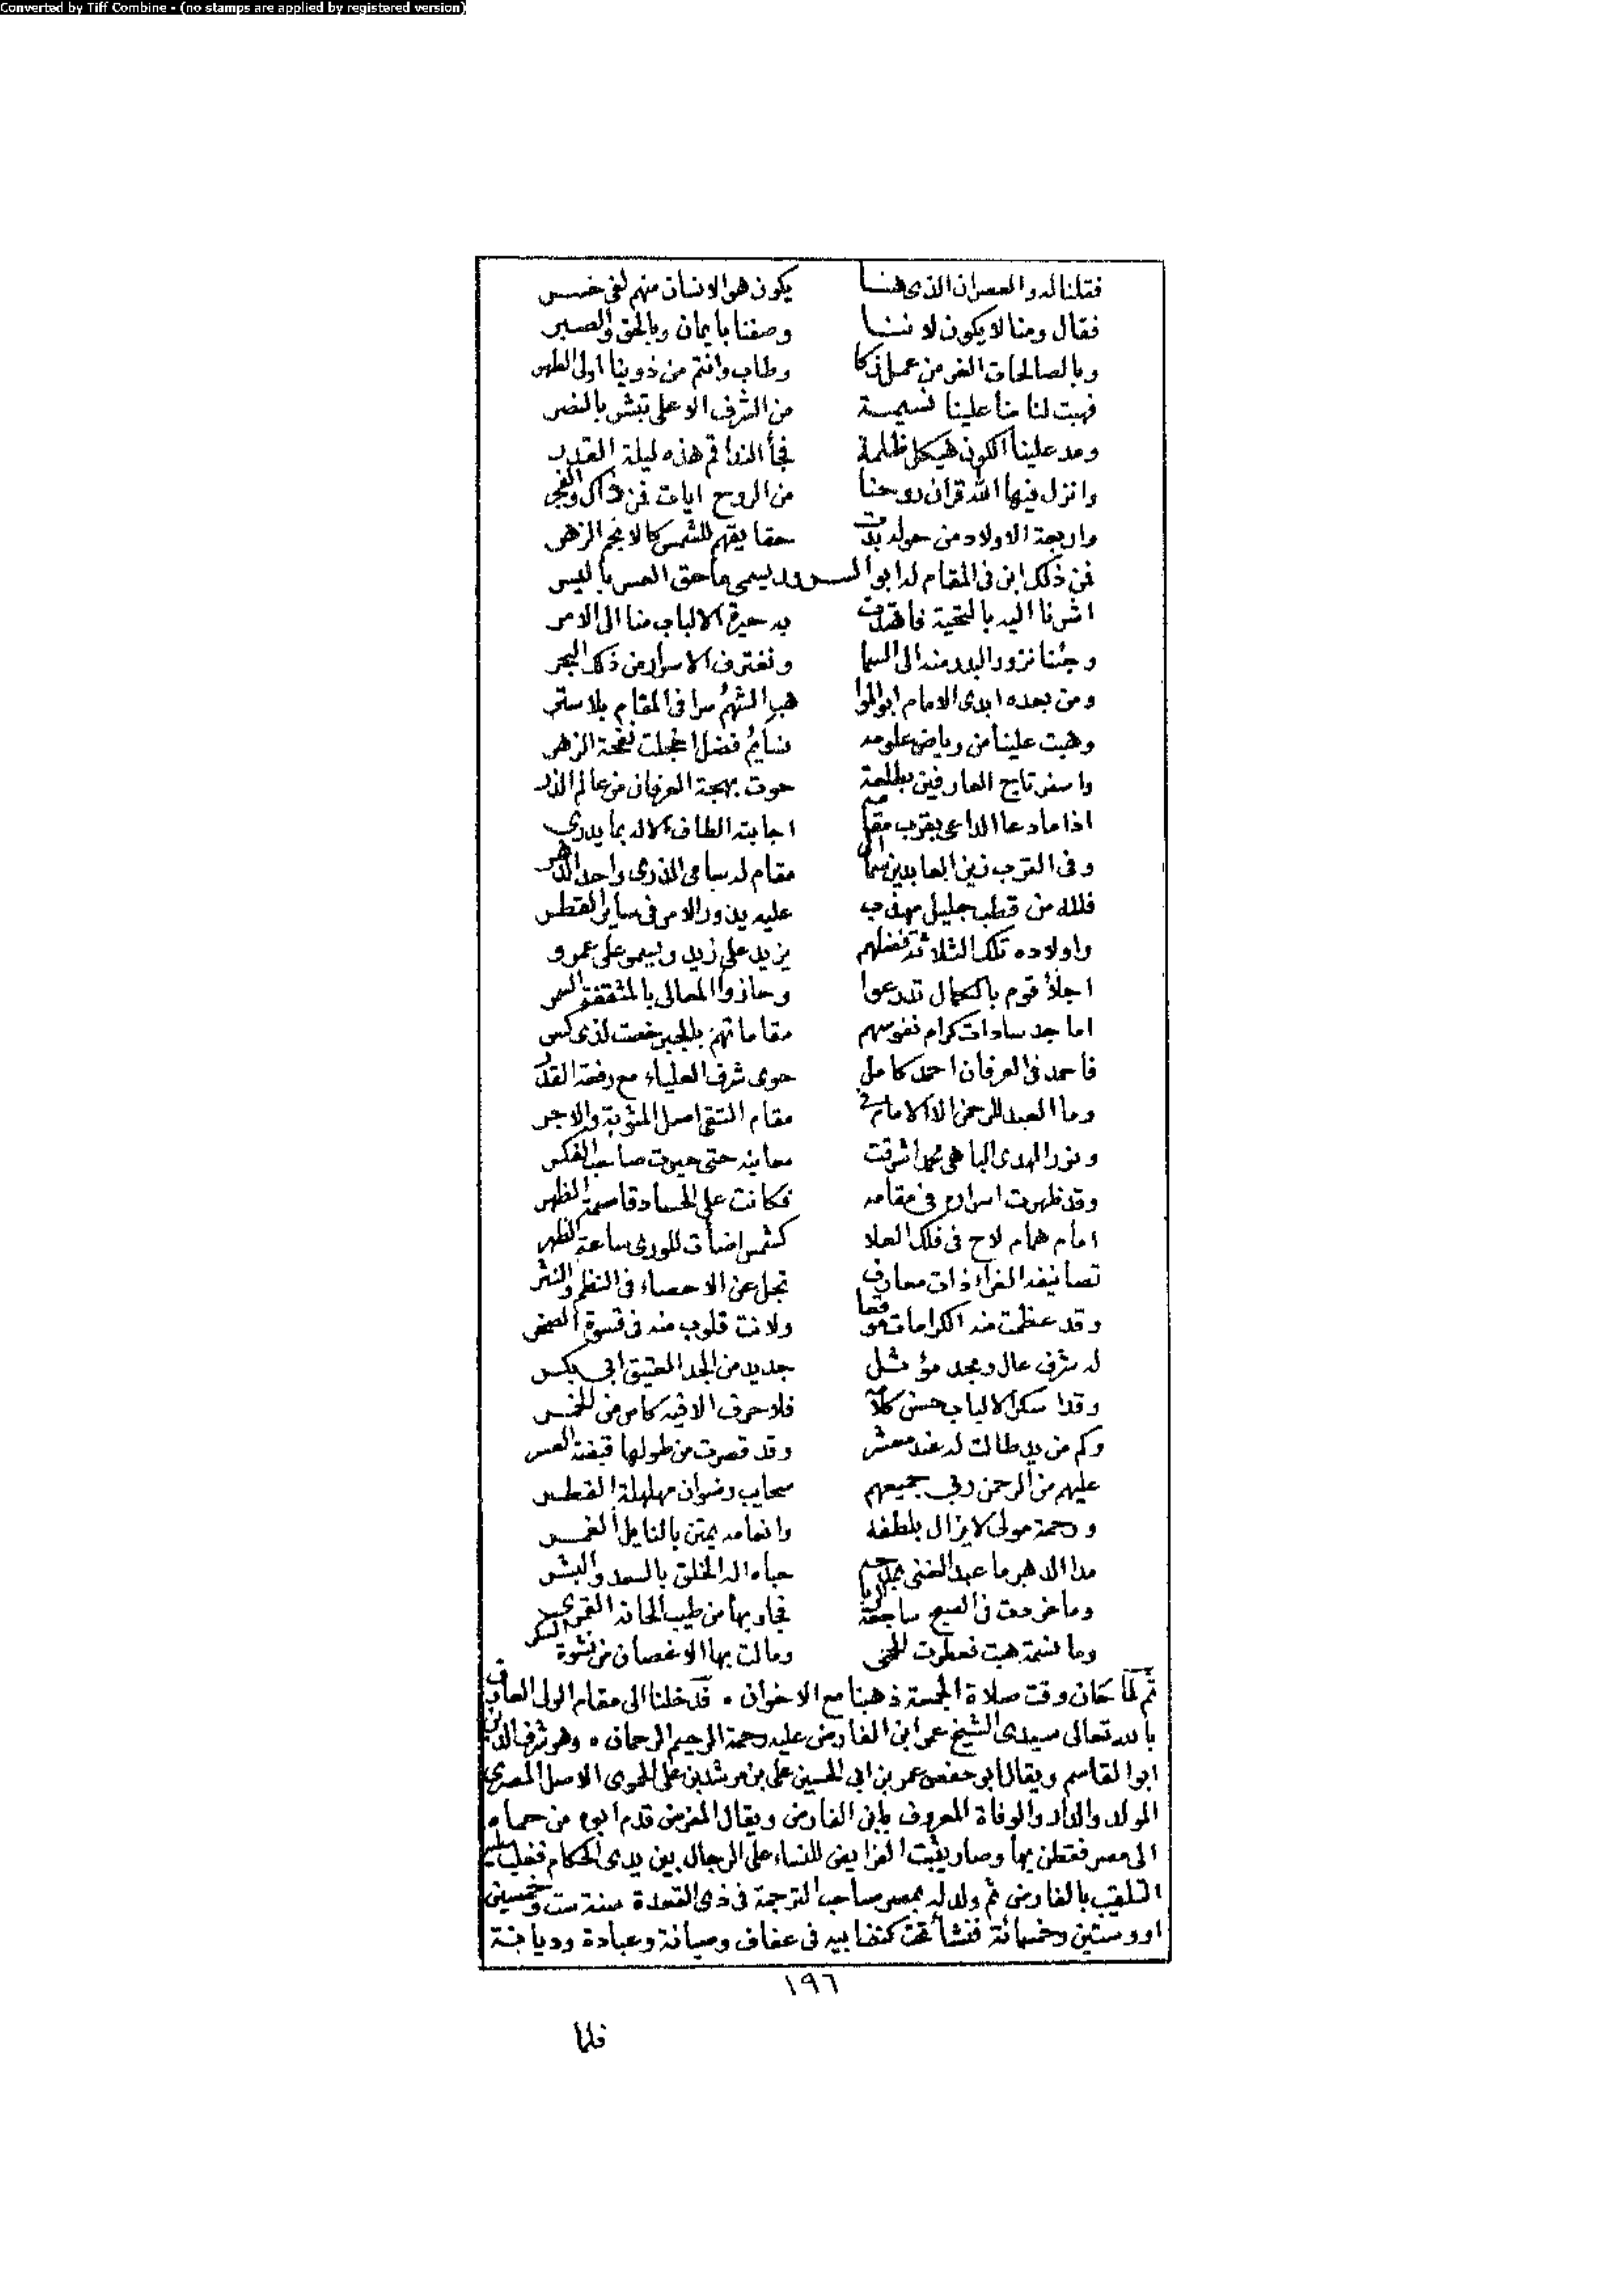 Converted by Tiff Combine - (no stamps are applied by registered version)
فقلنا له والعصر ان الذى هنا يكون هو الانسان منهم لفى خسر
فقال ومنا لا يكون لاننا وصفنا بايمان وبالحق والصبر
وبالصالحات الغر من عمل زكا وطاب وانتم من ذوينا اولى الطهر
فهبت لنا منا علينا نسيمة من الشرف الاعلى تبشر بالنصر
ومد علينا الكون هيكل ظلمة فجأ الندا قم هذه ليلة القدر
وانزل فيها الله قران روحنا من الروح ايات فمن ذاك والفجر
واربعة الاولاد من حوله بدت حقايقهم للشمس كالانجم الزهر
فمن ذلك ابن فى المقام له ابو السرور يسمى ماحق العسر باليسر
اشرنا اليه بالتحية فاهتدت به حيرة الالباب منا الى الامر
وجئنا نزور البدر منه الى السما ونغترف الاسرار من ذلك البحر
ومن بعده ابدى الامام ابو الموا هب الشهم سرا فى المقام بلا ستر
وهبت علينا من رياض علومه نسايم فضل اخجلت نفحة الزهر
واسفر تاج العارفين بطلعة حوت بهجة العرفان من عالم الذر
اذا ما دعا الداعى بقرب مقامه اجابته الطاف الاله بما يدرى
وفى القرب زين العابدين سما مقام له سامى الذرى واحد الدهر
فلله من قطب جليل مهذب عليه يدور الامر فى ساير القطر
واولاده تلك الثلاثة فضلهم يزيد على زيد ويسمو على عمرو
اجلأ قوم بالكمال تدرعوا وحازوا المعالى بالمثقفة السمر
اماجد سادات كرام نفوسهم مقاماتهم بالجبر خصت لذى كسر
فاحمد فى العرفان احمد كامل حوى شرف العلياء مع رفعة القدر
وما العبد للرحمن الا الامام فى مقام التقى اصل المثوبة والاجر
ونور الهدى الباهى محمد اشرقت معانيه حتى حيرت صاحب الفكر
وقد ظهرت اسراره فى مقامه فكانت على الحساد قاصمة الظهر
امام همام لاح فى فلك العلا كشمس اضأت للورى ساعة الظهر
تصانيفه الغراء ذات معارف تجل عن الاحصاء فى النظم والنثر
وقد عظمت منه الكرامات موقعا ولانت قلوب منه فى قسوة الصخر
له شرف عال ومجد مؤثل جديد من الجد العتيق ابى بكر
وقد اسكر الالباب حسن كلامه فلا حرف الا فيه كاس من الخمر
وكم من يد طالت له عند معشر وقد قصرت من طولها قبضة العسر
عليهم من الرحمن ربى جميعهم سحايب رضوان مهلهلة القطر
ورحمة مولى لا يزال بلطفه وانعامه يمتن بالنايل الغمر
مدا الدهر ما عبد الغنى بمدحهم حباه اله الخلق بالسعد والبشر
وما غردت فى الصبح ساجعة الربا فجاوبها من طيب الحانه القمرى
وما نسمة هبت فعطرت الحمى ومالت بها الاغصان من نشوة السكر
ثم لما حان وقت صلاة الجمعة ذهبنا مع الاخوان . فدخلنا الى مقام الولى العارف
بالله تعالى سيدى الشيخ عمر ابن الفارض عليه رحمة الرحيم الرحمان . وهو شرف الدين
ابو القاسم ويقال ابو حفص عمر بن ابى الحسين على بن مرشد بن على الحموى الاصل المصرى
المولد والدار والوفاة المعروف بابن الفارض ويقال المفرض قدم ابوه من حماه
الى مصر فقطن بها وصار يثبت الفرايض للنساء على الرجال بين يدى الحكام فغلب عليه
التلقيب بالفارض ثم ولد له بمصر صاحب الترجمة فى ذى القعدة سنة ست وخمسين
او وستين وخمسمائة فنشأ تحت كنف ابيه فى عفاف وصيانة وعبادة وديانة
١٩٦
فلما